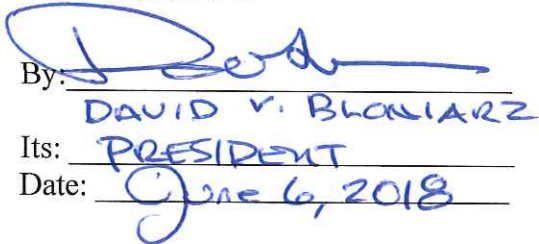 By:
DAVID V. BLONIARZ
Its: PRESIDENT
Date: June 6, 2018